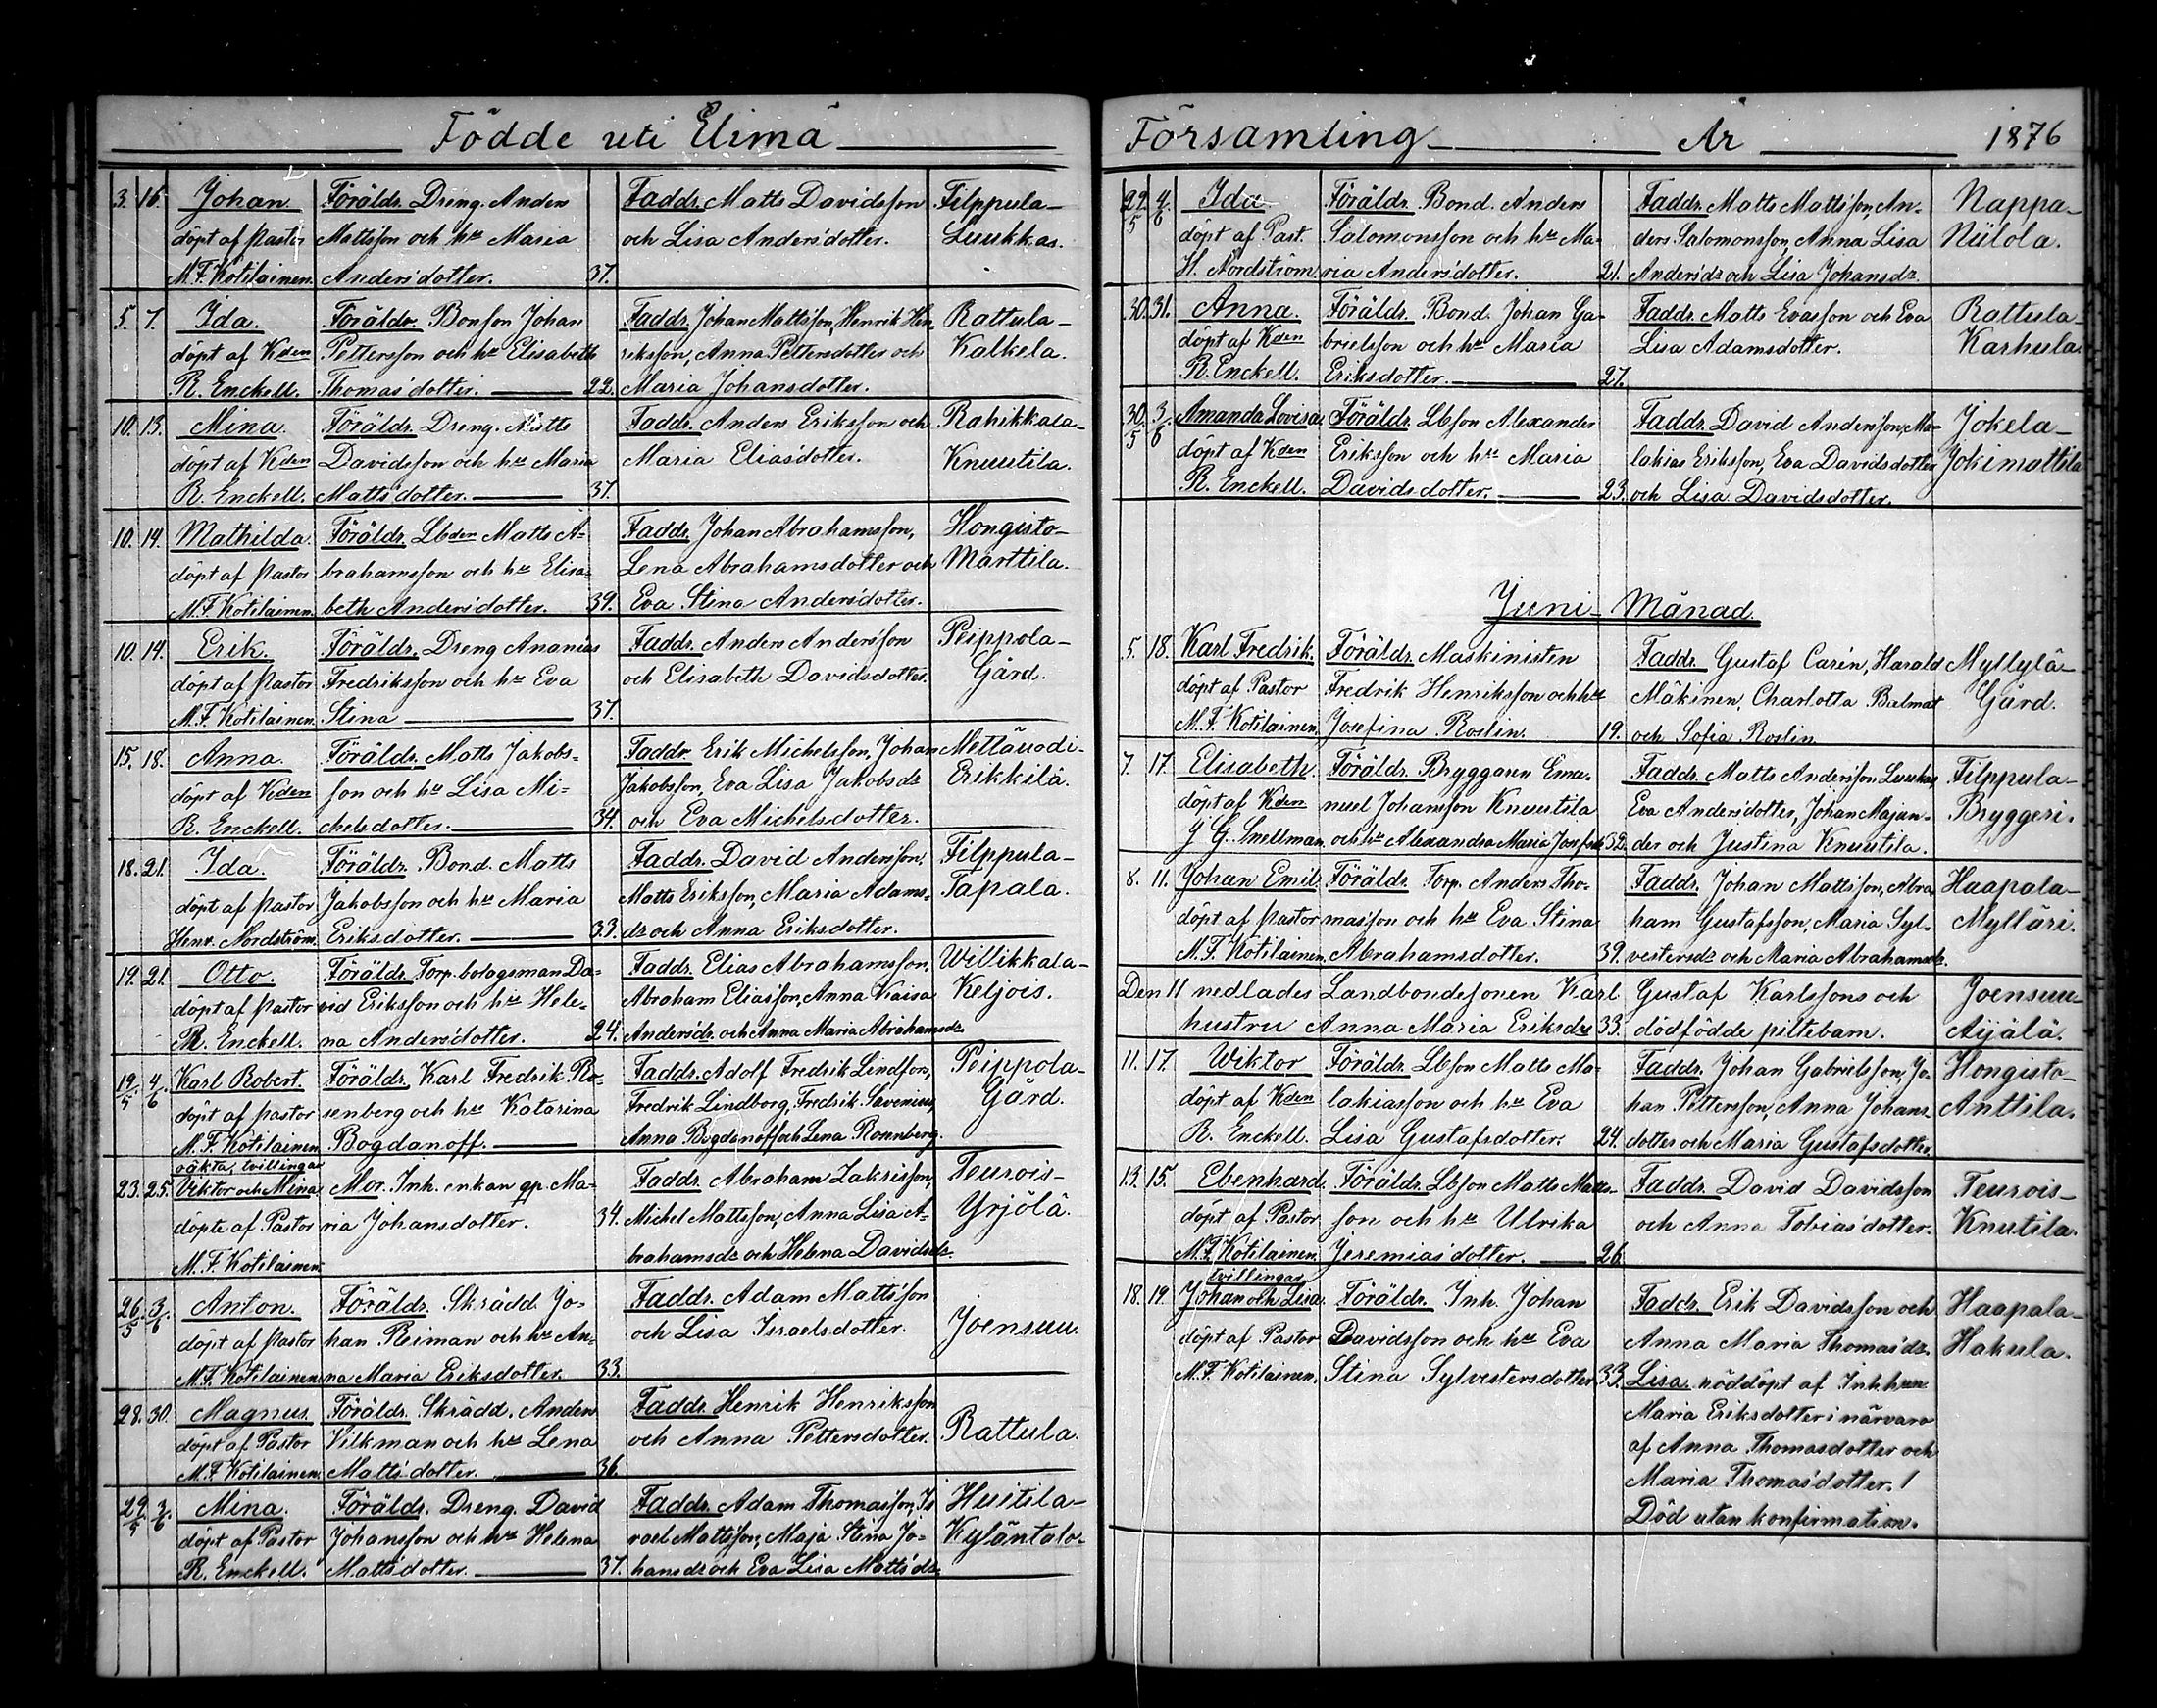 Födde uti Elimä
3. 16. Johan. Föräldr. Dreng. Anders 37. Faddr. Matts Davidsson Filppula-
döpt af Pastor Mattsson och h:u Maria och Lisa Andersdotter. Luukkas.
M. F. Kotilainen. Andersdotter.
5. 7. Ida. Föräldr. Bonson Johan Faddr. Johan Mattsson, Henrik Hen- Rattula-
döpt af Kden Pettersson och h:u Elisabeth riksson, Anna Pettersdotter och Kalkela.
R. Enckell. Thomasdotter. 22. Maria Johansdotter.
10. 13. Mina. Föräldr. Dreng. Matts Faddr. Anders Eriksson och Rahikkala-
döpt af Kden Davidsson och h:u Maria Maria Eliasdotter. Knuutila.
R. Enckell. Mattsdotter. 37.
10. 14. Mathilda. Föräldr. Lbden Matts A- Faddr. Johan Abrahamsson, Hongisto-
döpt af Pastor brahamsson och h:u Elisa- Lena Abrahamsdotter och Marttila.
M. F. Kotilainen. beth Andersdotter. 39. Eva Stina Andersdotter.
10. 14. Erik. Föräldr. Dreng Ananias Faddr. Anders Andersson Peippola-
döpt af Pastor Fredriksson och h:u Eva och Elisabeth Davidsdotter. Gård.
M. F. Kotilainen. Stina 37.
15. 18. Anna. Föräldr. Matts Jakobs- Faddr. Erik Michelsson, Johan Mettäuodi-
döpt af Kden son och h:u Lisa Mi- Jakobsson, Eva Lisa Jakobsdr Erikkilä.
R. Enckell. chelsdotter. 34. och Eva Michelsdotter.
18. 21. Ida. Föräldr. Bond. Matts Faddr. David Andersson, Filppula-
döpt af Pastor Jakobsson och h:u Maria Matts Eriksson, Maria Adams- Tapala.
Henr. Nordström. Eriksdotter. 33. dr och Anna Eriksdotter.
19. 21. Otto. Föräldr. Torp.bolagsman Da- Faddr. Elias Abrahamsson, Willikkala-
döpt af Pastor vid Eriksson och h:u Hele- Abraham Eliasson, Anna Kaisa Keljois.
R. Enckell. na Andersdotter. 24. Andersdr och Anna Maria Abrahamsdr
19/5 4/6 Karl Robert. Föräldr. Karl Fredrik Ro- Faddr. Adolf Fredrik Lindfors, Peippola-
döpt af pastor senberg och h:u Katarina Fredrik Lindborg, Fredrik Savenius, Gård.
M. F. Kotilainen Bogdanoff. Anna Bogdanoff och Lena Ronnberg.
oäkta, tvillingar
23. 25. Viktor och Mina Mor. Inh. enkan gp. Ma- Faddr. Abraham Zakrisson, Teurois-
döpte af Pastor ria Johansdotter. 34. Michel Mattsson, Anna Lisa A- Yrjölä.
M. F. Kotilainen. brahamsdr och Helena Davidsdr.
26/5 3/6 Anton. Föräldr. Skrädd. Jo- Faddr. Adam Mattsson
döpt af Pastor han Reiman och h:u An- och Lisa Israelsdotter. Joensuu.
M. F. Kotilainen. na Maria Eriksdotter. 33.
28. 30. Magnus. Föräldr. Skrädd. Anders Faddr. Henrik Henriksson
döpt af Pastor Vilkman och h:u Lena och Anna Pettersdotter. Rattula.
M. F. Kotilainen. Mattsdotter. 36.
29/5 3/6 Mina. Föräldr. Dreng. David Faddr. Adam Thomasson, Is Huitila-
döpt af Pastor Johansson och h:u Helena rael Mattsson, Maja Stina Jo- Kyläntalo.
R. Enckell. Mattsdotter. 37. hansdr och Eva Lisa Mattsdr.
Församling År 1876
29/5 4/6 Ida Föräldr. Bond. Anders Faddr. Matts Mattsson, An- Nappa-
döpt af Past. Salomonsson och h:u Ma- ders Salomonsson, Anna Lisa Niilola.
H. Nordström ria Andersdotter. 21. Andersdr och Lisa Johansdr.
30. 31. Anna. Föräldr. Bond. Johan Ga- Faddr. Matts Evasson och Eva Rattula-
döpt af Kden brielsson och h:u Maria Lisa Adamsdotter. Karhula.
R. Enckell. Eriksdotter. 27.
30/5 3/6 Amanda Lovisa. Föräldr. Lbson Alexander Faddr. David Andersson, Ma- Jokela-
döpt af Kden Eriksson och h:u Maria lakias Eriksson, Eva Davidsdotter Jokimattila
R. Enckell. Davidsdotter. 23. och Lisa Davidsdotter.
Juni Månad.
5. 18. Karl Fredrik. Föräldr. Maskinisten Faddr. Gustaf Carén, Harald Myllylä-
döpt af Pastor Fredrik Henriksson och h:u Mäkinen, Charlotta Balmat Gård.
M. F. Kotilainen, Josefina Roslin. 19. och Sofia Roslin.
7. 17. Elisabeth. Föräldr. Bryggaren Ema- Faddr. Matts Andersson Luukas, Filppula-
döpt af Kden nuel Johansson Knuutila Eva Andersdotter, Johan Majan- Bryggeri.
J G. Snellman. och h:u Alexandra Maria Josefsdr 32. der och Justina Knuutila.
8. 11. Johan Emil. Föräldr. Torp. Anders Tho- Faddr. Johan Mattsson, Abra- Haapala-
döpt af Pastor masson och h:u Eva Stina ham Gustafsson, Maria Syl- Mylläri.
M. F. Kotilainen. Abrahamsdotter. 39. vestersdr och Maria Abrahamsdr.
Den 11 nedlades Landbondesonen Karl Gustaf Karlssons och Joensuu-
hustru Anna Maria Eriksdrs 33. dödfödde piltebarn. Aijälä.
11. 17. Wiktor Föräldr. Lbson Matts Ma- Faddr. Johan Gabrielsson, Jo- Hongisto-
döpt af Kden lakiasson och h:u Eva han Pettersson, Anna Johans- Anttila.
R. Enckell. Lisa Gustafsdotter. 24. dotter och Maria Gustafsdotter.
13. 15. Ebenhard. Föräldr. Lbson Matts Matts- Faddr. David Davidsson Teurois-
döpt af Pastor son och h:u Ulrika och Anna Tobiasdotter. Knutila.
M. F. Kotilainen. Jeremiasdotter. 26.
tvillingar
18. 19. Johan och Lisa. Föräldr. Inh. Johan Faddr. Erik Davidsson och Haapala-
döpt af Pastor Davidsson och h:u Eva Anna Maria Thomasdr. Hakula.
M. F. Kotilainen. Stina Sylvestersdotter 33. Lisa nöddöpt af Inhhun
Maria Eriksdotter i närvaro
af Anna Thomasdotter och
Maria Thomasdotter. /
Död utan konfirmation.